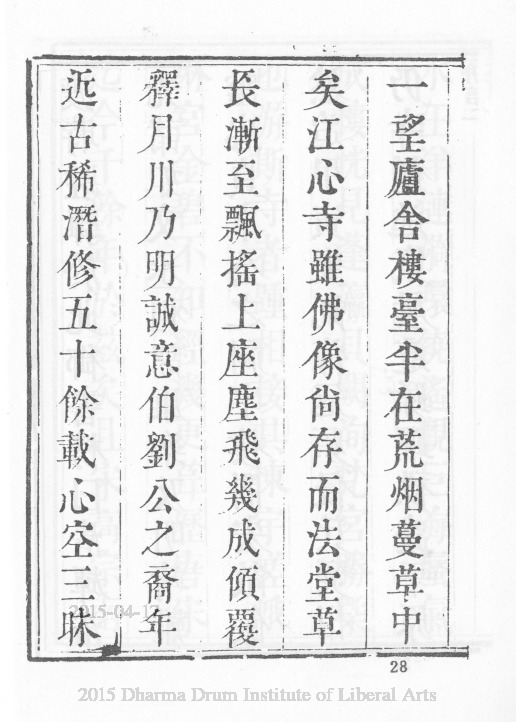 一望廬舍樓臺半在荒烟蔓草中
矣江心寺雖佛像尙存而法堂草
長漸至飄搖上座塵飛幾成傾覆
釋月川乃明誠意伯劉公之裔年
近古稀潛修五十餘載心空三昧
28
2015-04-17
2015 Dharma Drum Institute of Liberal Arts